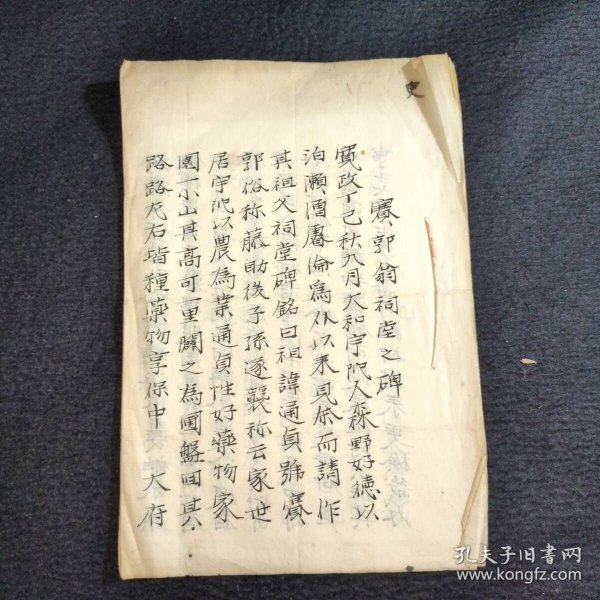 史
賽郭翁祠堂之碑
寛政丁巳秋九月大和宇陀人森野好徳以
泊瀬酒屠倫為介以来見余而請作
其祖父祠堂碑銘曰祖諱通貞號賽
郭俗称藤助後子孫遂襲称云家世
居宇陀以農為業通貞性好藥物家
園一小山其高可一里闢之為圃盤回其
路路左右皆種藥物享保中 大府
孔夫子旧书网
www.kongfz.com